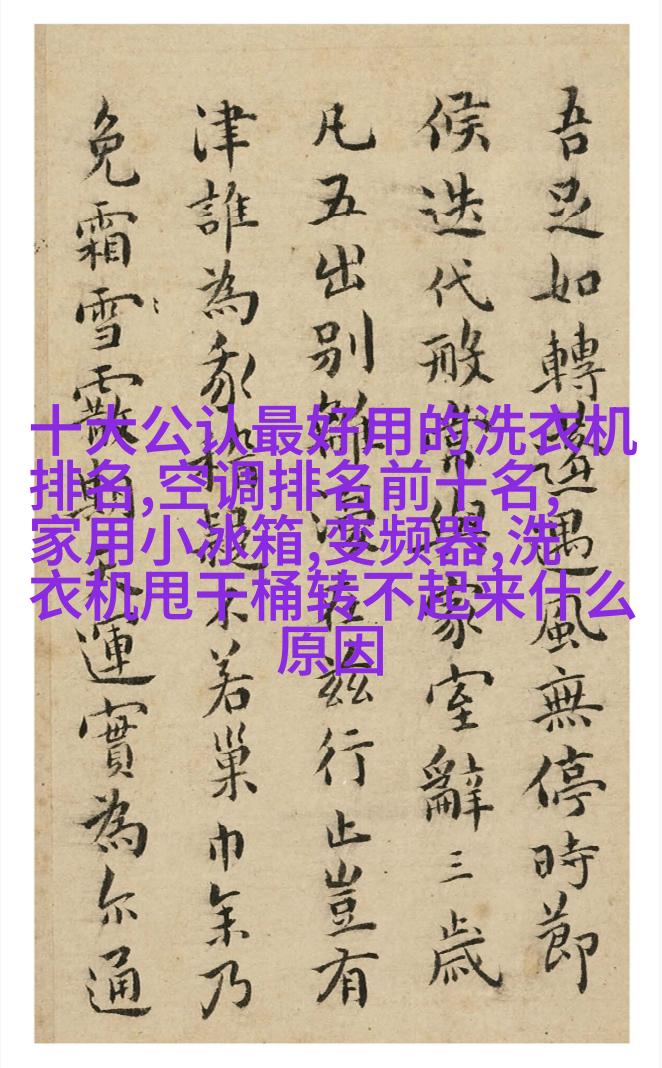 十大公认最好用的洗衣机
排名,空调排名前十名,
家用小冰箱,变频器,洗
衣机甩干桶转不起来什么
原因
吾足如轉遇風無停時節
候迭代常與家室辭三歲
凡五出別離還在茲行止豈有
津誰為疑不若巢巾乃
免霜雪霰運實為尔通